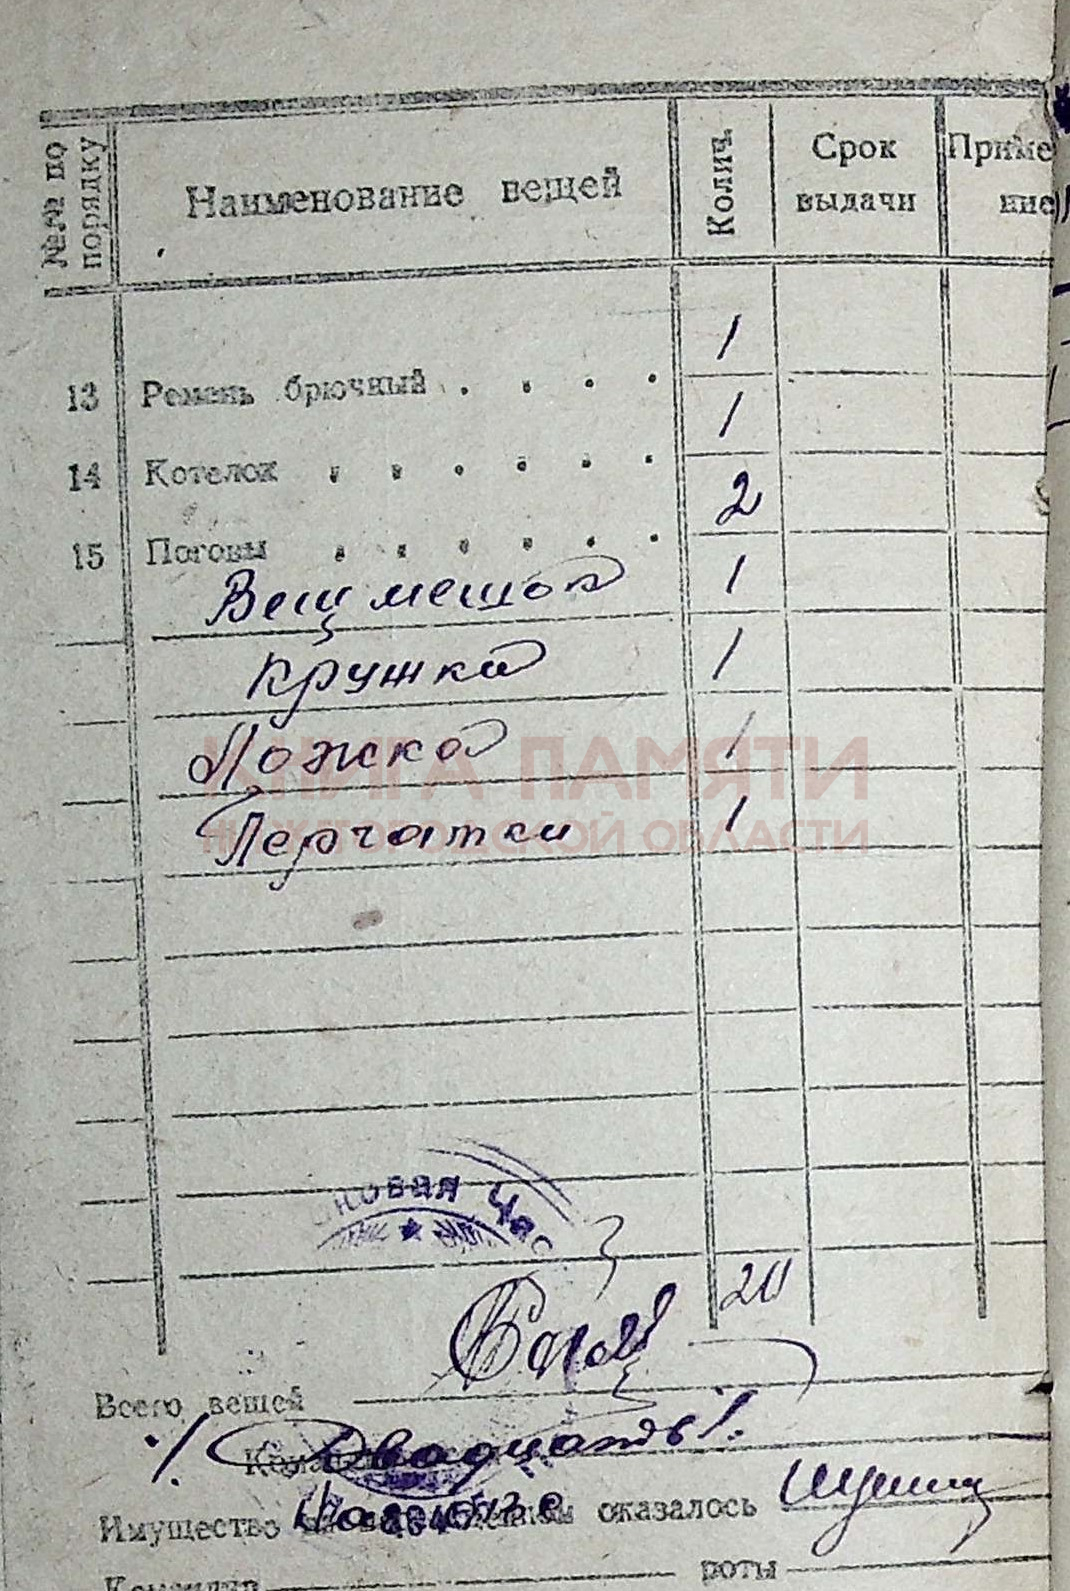 №№ по порядку Наименование вещей Колич. Срок выдачи Приме ние
1
13 Ремень брючный . . . .
1
14 Котелок . . . . . .
2
15 Погоны . . . . . .
Вещ мешок 1
Кружка 1
Ложка 1
КНИГА ПАМЯТИ
Перчатки 1
НИЖЕГОРОДСКОЙ ОБЛАСТИ
овая Час
20
Всего вещей
Двадцать
Имущество оказалось
Командир роты